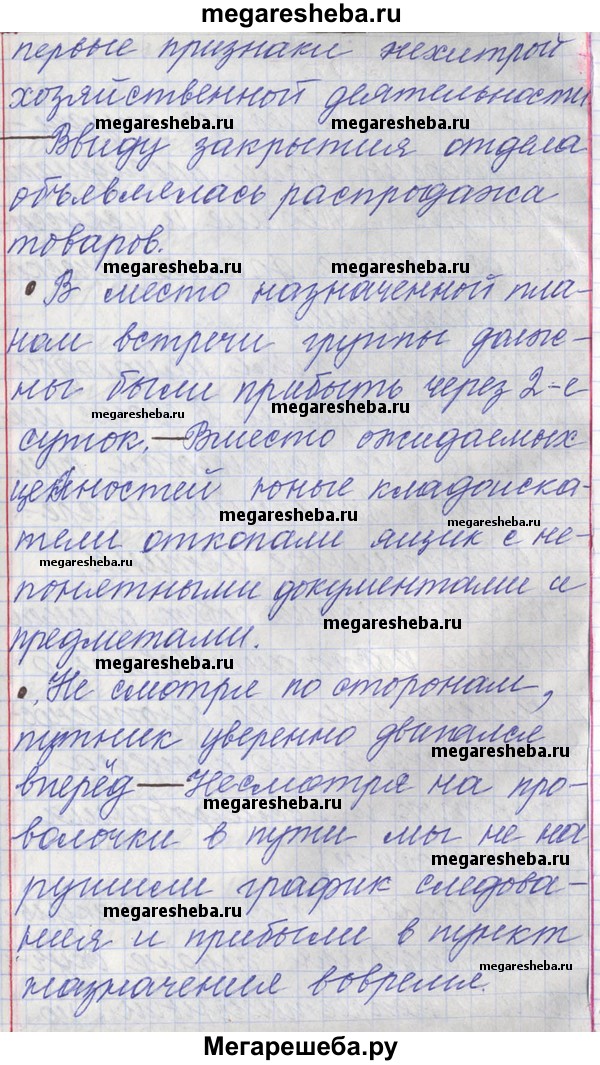 megaresheba.ru
первые признаки нехитрой
хозяйственной деятельности
megaresheba.ru megaresheba.ru
— Ввиду закрытия отдела
объявлялась распродажа
товаров.
megaresheba.ru megaresheba.ru
• В место назначенной пла-
ном встречи группы долж-
ны были прибыть через 2-е
megaresheba.ru megaresheba.ru
суток. — Вместо ожидаемых
ценностей юные кладоиска-
megaresheba.ru megaresheba.ru
тели откопали ящик с не-
megaresheba.ru
понятными документами и
megaresheba.ru
предметами.
megaresheba.ru
• Не смотря по сторонам,
путник уверенно двигался
megaresheba.ru
вперёд — Несмотря на про-
megaresheba.ru
волочки в пути мы не на
megaresheba.ru
рушили график следова-
megaresheba.ru
ния и прибыли в пункт
megaresheba.ru
назначения вовремя.
Мегарешеба.ру